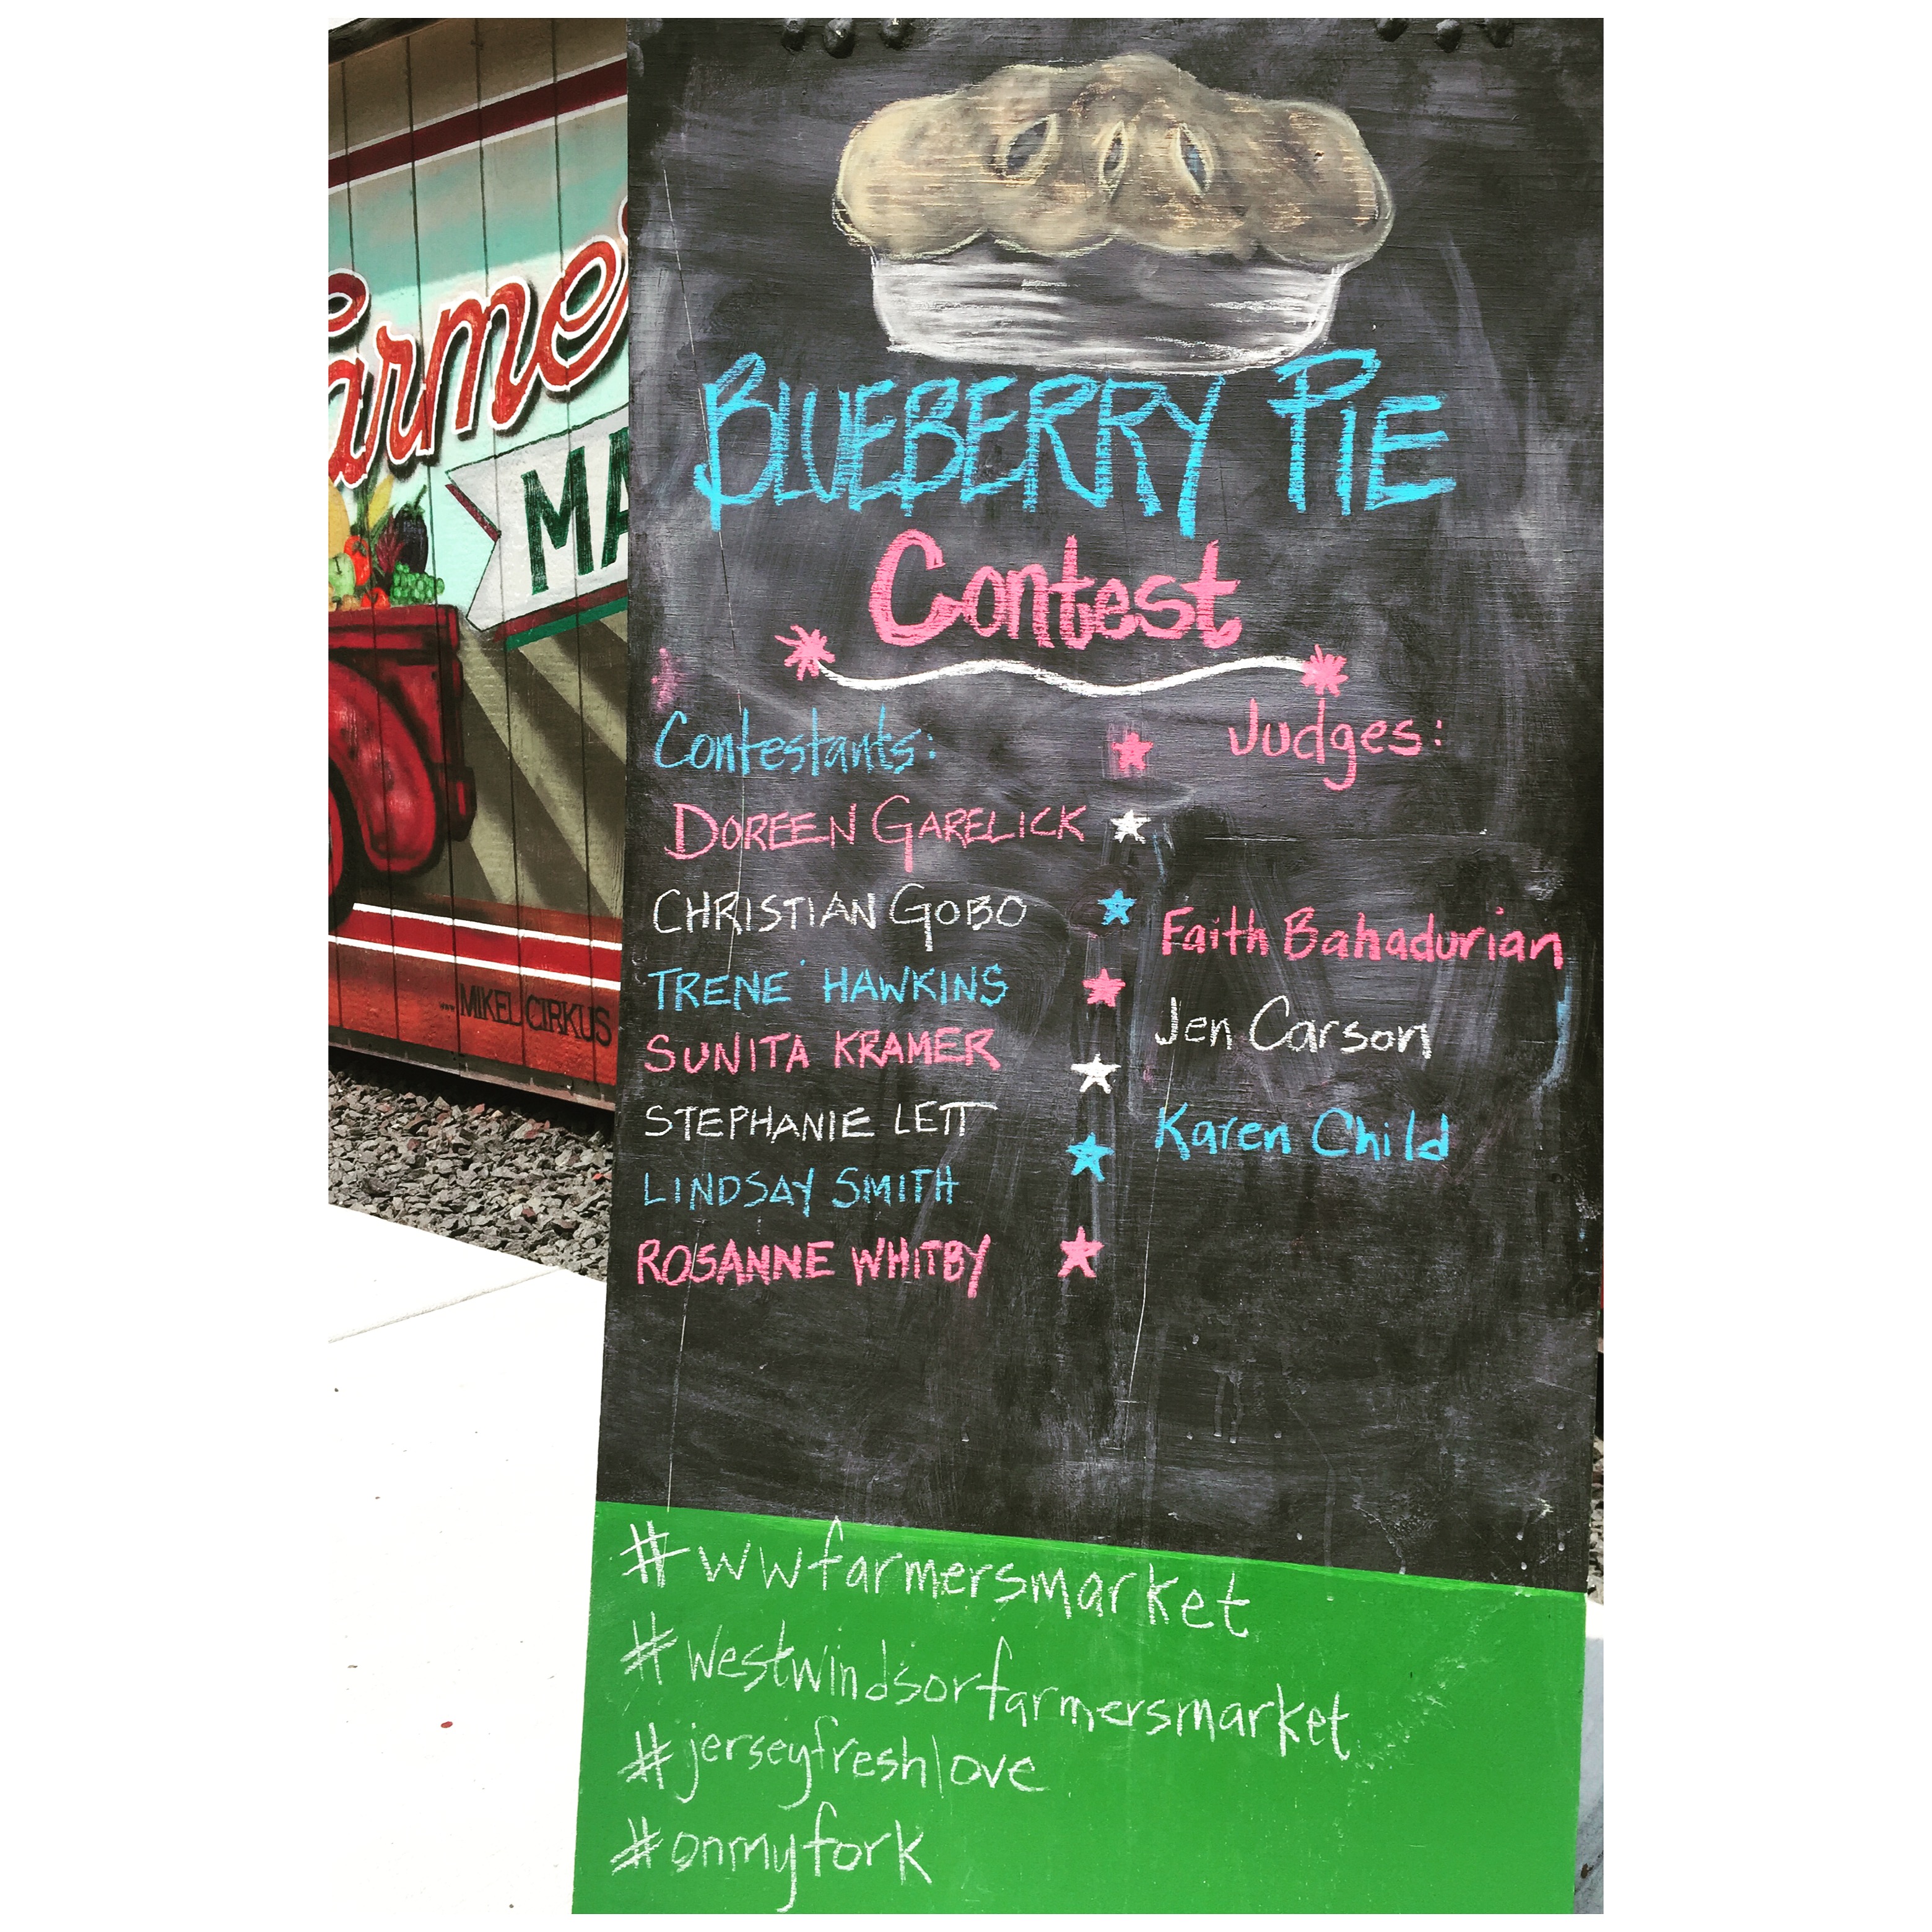 Farme
MA
MIKEL CIRKUS
BLUEBERRY PIE
Contest
Contestants:
DOREEN GARELICK
CHRISTIAN GOBO
TRENE' HAWKINS
SUNITA KRAMER
STEPHANIE LETT
LINDSAY SMITH
ROSANNE WHITBY
Judges:
Faith Bahadurian
Jen Carson
Karen Child
#wwfarmersmarket
#westwindsorfarmersmarket
#jerseyfreshlove
#onmyfork